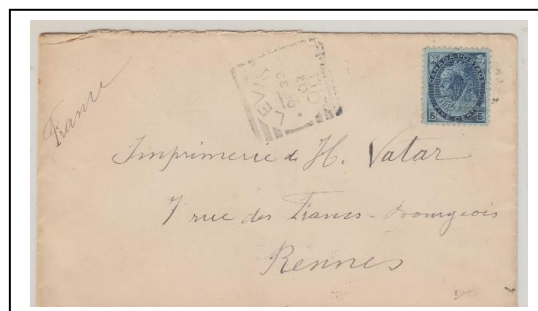 France
CANADA POSTAGE
5 5
Imprimerie de H. Vatar
7 rue des Francs-Bourgeois
Rennes